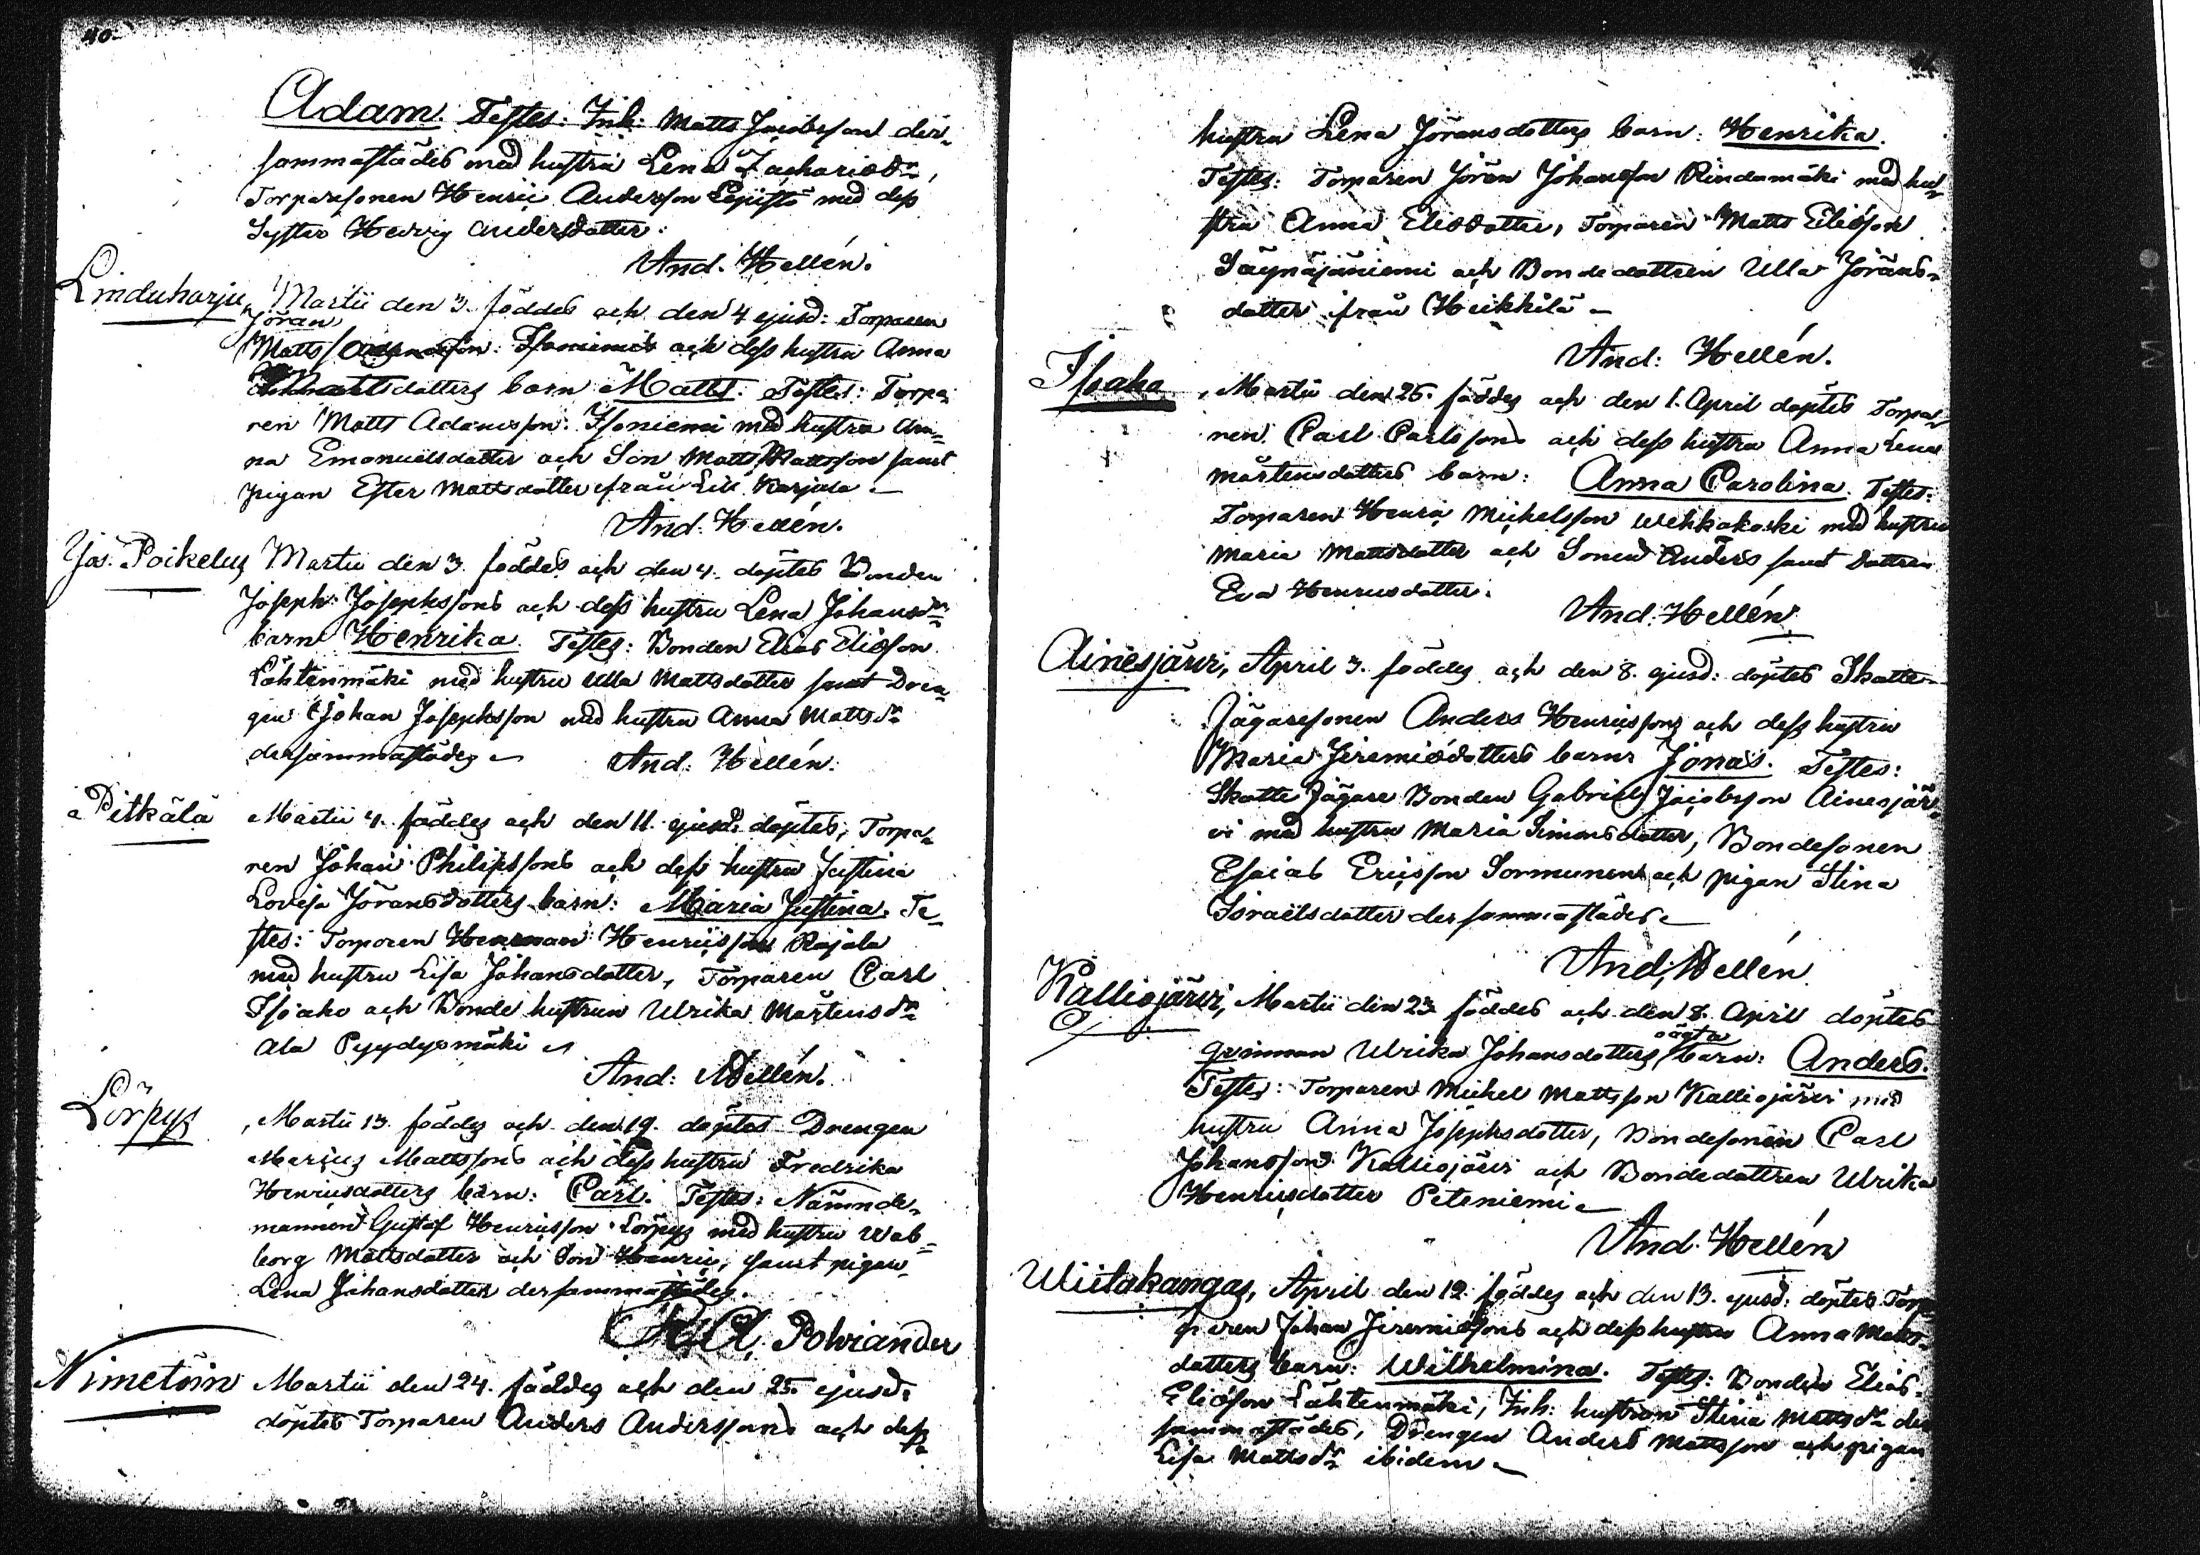 40.
Adam. Testes: Inh: Matts Jacobsson der-
sammastädes med hustru Lena Zachariæd:r,
Torparesonen Henric Andersson Lepistö med dess
Syster Hedvig Andersdotter.
And. Hellén.
Linduharju, Martii den 3. föddes och den 4 ejusd: Torparen
Jöran
Matts Isoniemis och dess hustru Anna
dotters barn Matts. Testes: Torpa-
ren Matts Adamsson Isoniemi med hustru An-
na Emanuelsdotter och Son Matts Mattsson samt
pigan Ester Mattsdotter från Lill Karjala.
And. Hellén.
Jos. Poikelus Martii den 3. föddes och den 4. döptes Bonden
Joseph Josephssons och dess hustru Lena Johansd:rs
barn Henrika. Testes: Bonden Elias Eliasson
Lähtenmäki med hustru Ulla Mattsdotter samt Dren-
gen Johan Josephsson med hustru Anna Mattsd:r
dersammastädes.
And: Hellén.
Pitkälä Martii 4. föddes och den 11. ejusd: döptes, Torpa-
ren Johan Philipssons och dess hustru Justina
Lovisa Jöransdotters barn: Maria Justina. Te-
stes: Torparen Herman Henricsson Rajala
med hustru Lisa Johansdotter, Torparen Carl
Isoaho och Bonde hustrun Ulrika Mårtensd:r
Ala Pyydysmäki
And: Hellén.
Lörpys, Martii 13. föddes och den 19. döptes Drengen
Marcus Mattssons och dess hustru Fredrika
Henricsdotters barn: Carl. Testes: Nämnde-
mannen Gustaf Henricsson Lörpys med hustru Wal-
borg Mattsdotter och Son Henric, samt pigan
Lena Johansdotter dersammastädes.
Polviander
Nimetöin Martii den 24. föddes och den 25. ejusd:
döptes Torparen Anders Anderssons och dess
hustru Lena Jöransdotters barn: Henrika.
Testes: Torparen Jöran Johansson Rindamäki med hu-
stru Anna Eliædotter, Torparen Matts Eliæson
Säynäjäniemi och Bondedottren Ulla Jörans-
dotter från Heikkilä
And: Hellén.
Isoaho, Martii den 26. föddes och den 1. April döptes Torpa-
ren Carl Carlssons och dess hustru Anna Lena
Mårtensdotters barn: Anna Carolina. Testes:
Torparen Henric Michelsson Wehkakoski med hustru
Maria Mattsdotter och Sonen Anders samt Dottren
Eva Henricsdotter.
And: Hellén.
Ainesjärvi, April 3. föddes och den 8. ejusd: döptes Skatte-
Jägaresonen Anders Henricssons och dess hustru
Maria Jeremiædotters barn Jonas. Testes:
Skatte Jägare Bonden Gabriel Jacobsson Ainesjär-
vi med hustru Maria Simonsdotter, Bondesonen
Esaias Ericsson Sormunen och pigan Stina
Israelsdotter dersammastädes
And: Hellén
Kalliojärvi, Martii den 23. föddes och den 8. April döptes
oägta
qvinnan Ulrika Johansdotters barn: Anders.
Testes: Torparen Michel Mattsson Kalliojärvi med
hustru Anna Josephsdotter, Bondesonen Carl
Johansson Kalliojärvi och Bondedottren Ulrika
Henricsdotter Peteniemi
And. Hellén
Wiitakangas, April den 12. föddes och den 13. ejusd: döptes Torp-
aren Johan Jeremiæsons och dess hustru Anna Matts-
dotters barn: Wilhelmina. Testes: Bonden Elias
Eliæson Lähtenmäki, Inh: hustrun Stina Mattsd:r der
sammastädes, Drengen Anders Mattsson och pigan
Lisa Mattsd:r ibidem